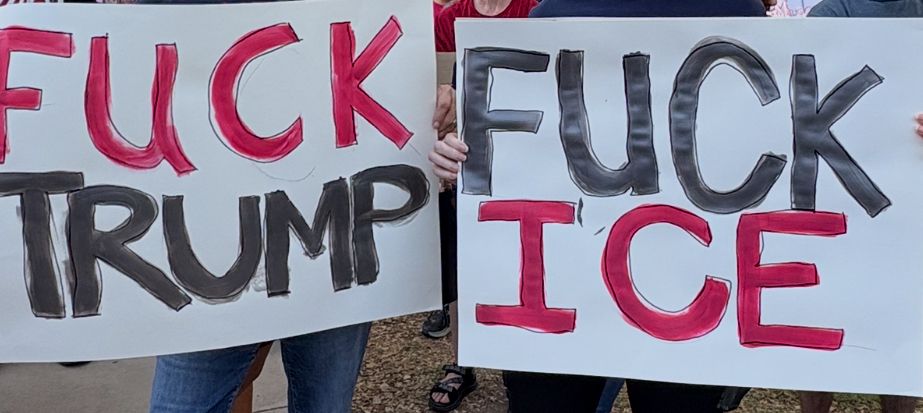 FUCK
TRUMP
FUCK
ICE